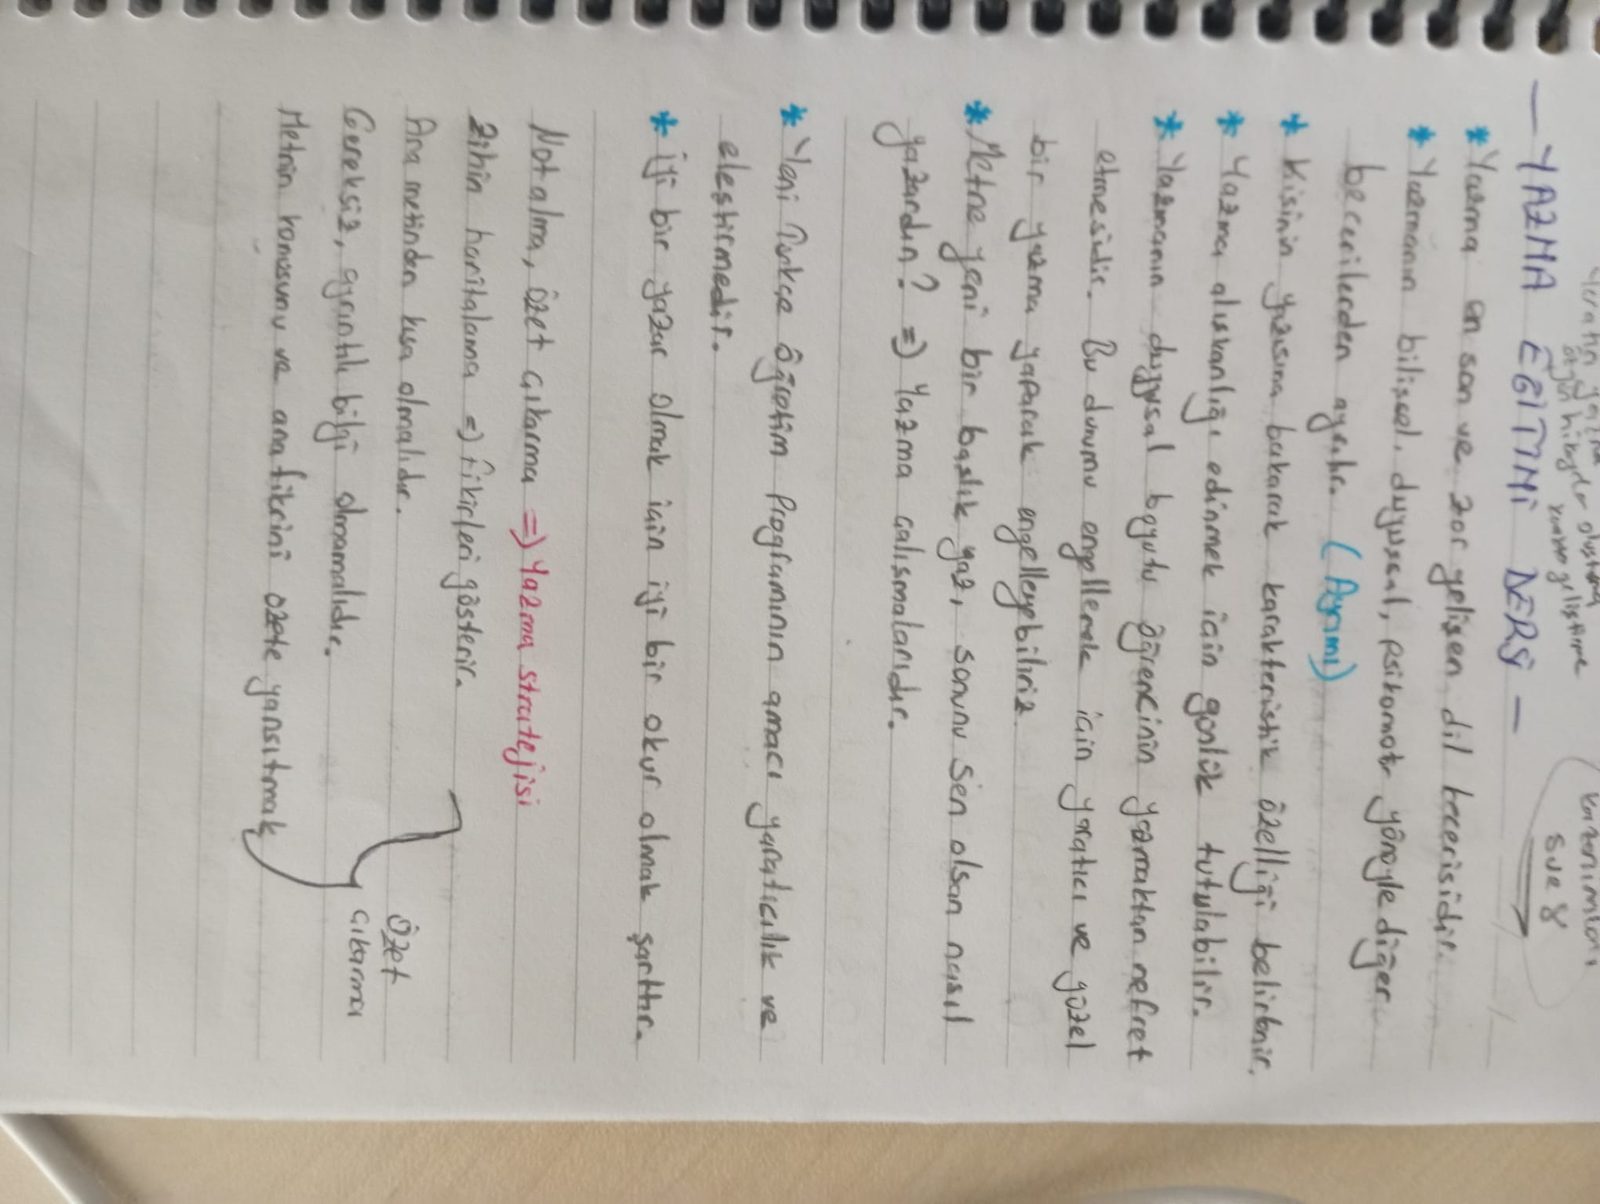 — YAZMA EĞİTİMİ DERSİ —
* Yazma en son ve zor gelişen dil becerisidir.
* Yazmanın bilişsel, duyuşsal, psikomotr yönüyle diğer
becerilerden ayrılır. (Ayrımı)
* Kişinin yazısına bakarak karakteristik özelliği belirlenir.
* Yazma alışkanlığı edinmek için günlük tutulabilir.
* Yazmanın duyuşsal boyutu öğrencinin yazmaktan nefret
etmesidir. Bu durumu engellemek için yaratıcı ve güzel
bir yazma yaparak engelleyebiliriz.
* Metne yeni bir başlık yaz, sonunu sen olsan nasıl
yazardın? => Yazma çalışmalarıdır.
* Yeni Türkçe Öğretim Programının amacı yaratıcılık ve
eleştirmedir.
* İyi bir yazar olmak için iyi bir okur olmak şarttır.
Not alma, özet çıkarma => Yazma stratejisi
Zihin haritalama => Fikirleri gösterir.
Ana metinden kısa olmalıdır.
Gereksiz, ayrıntılı bilgi olmamalıdır.
Metnin konusunu ve anafikrini özete yansıtmak
Özet
çıkarma